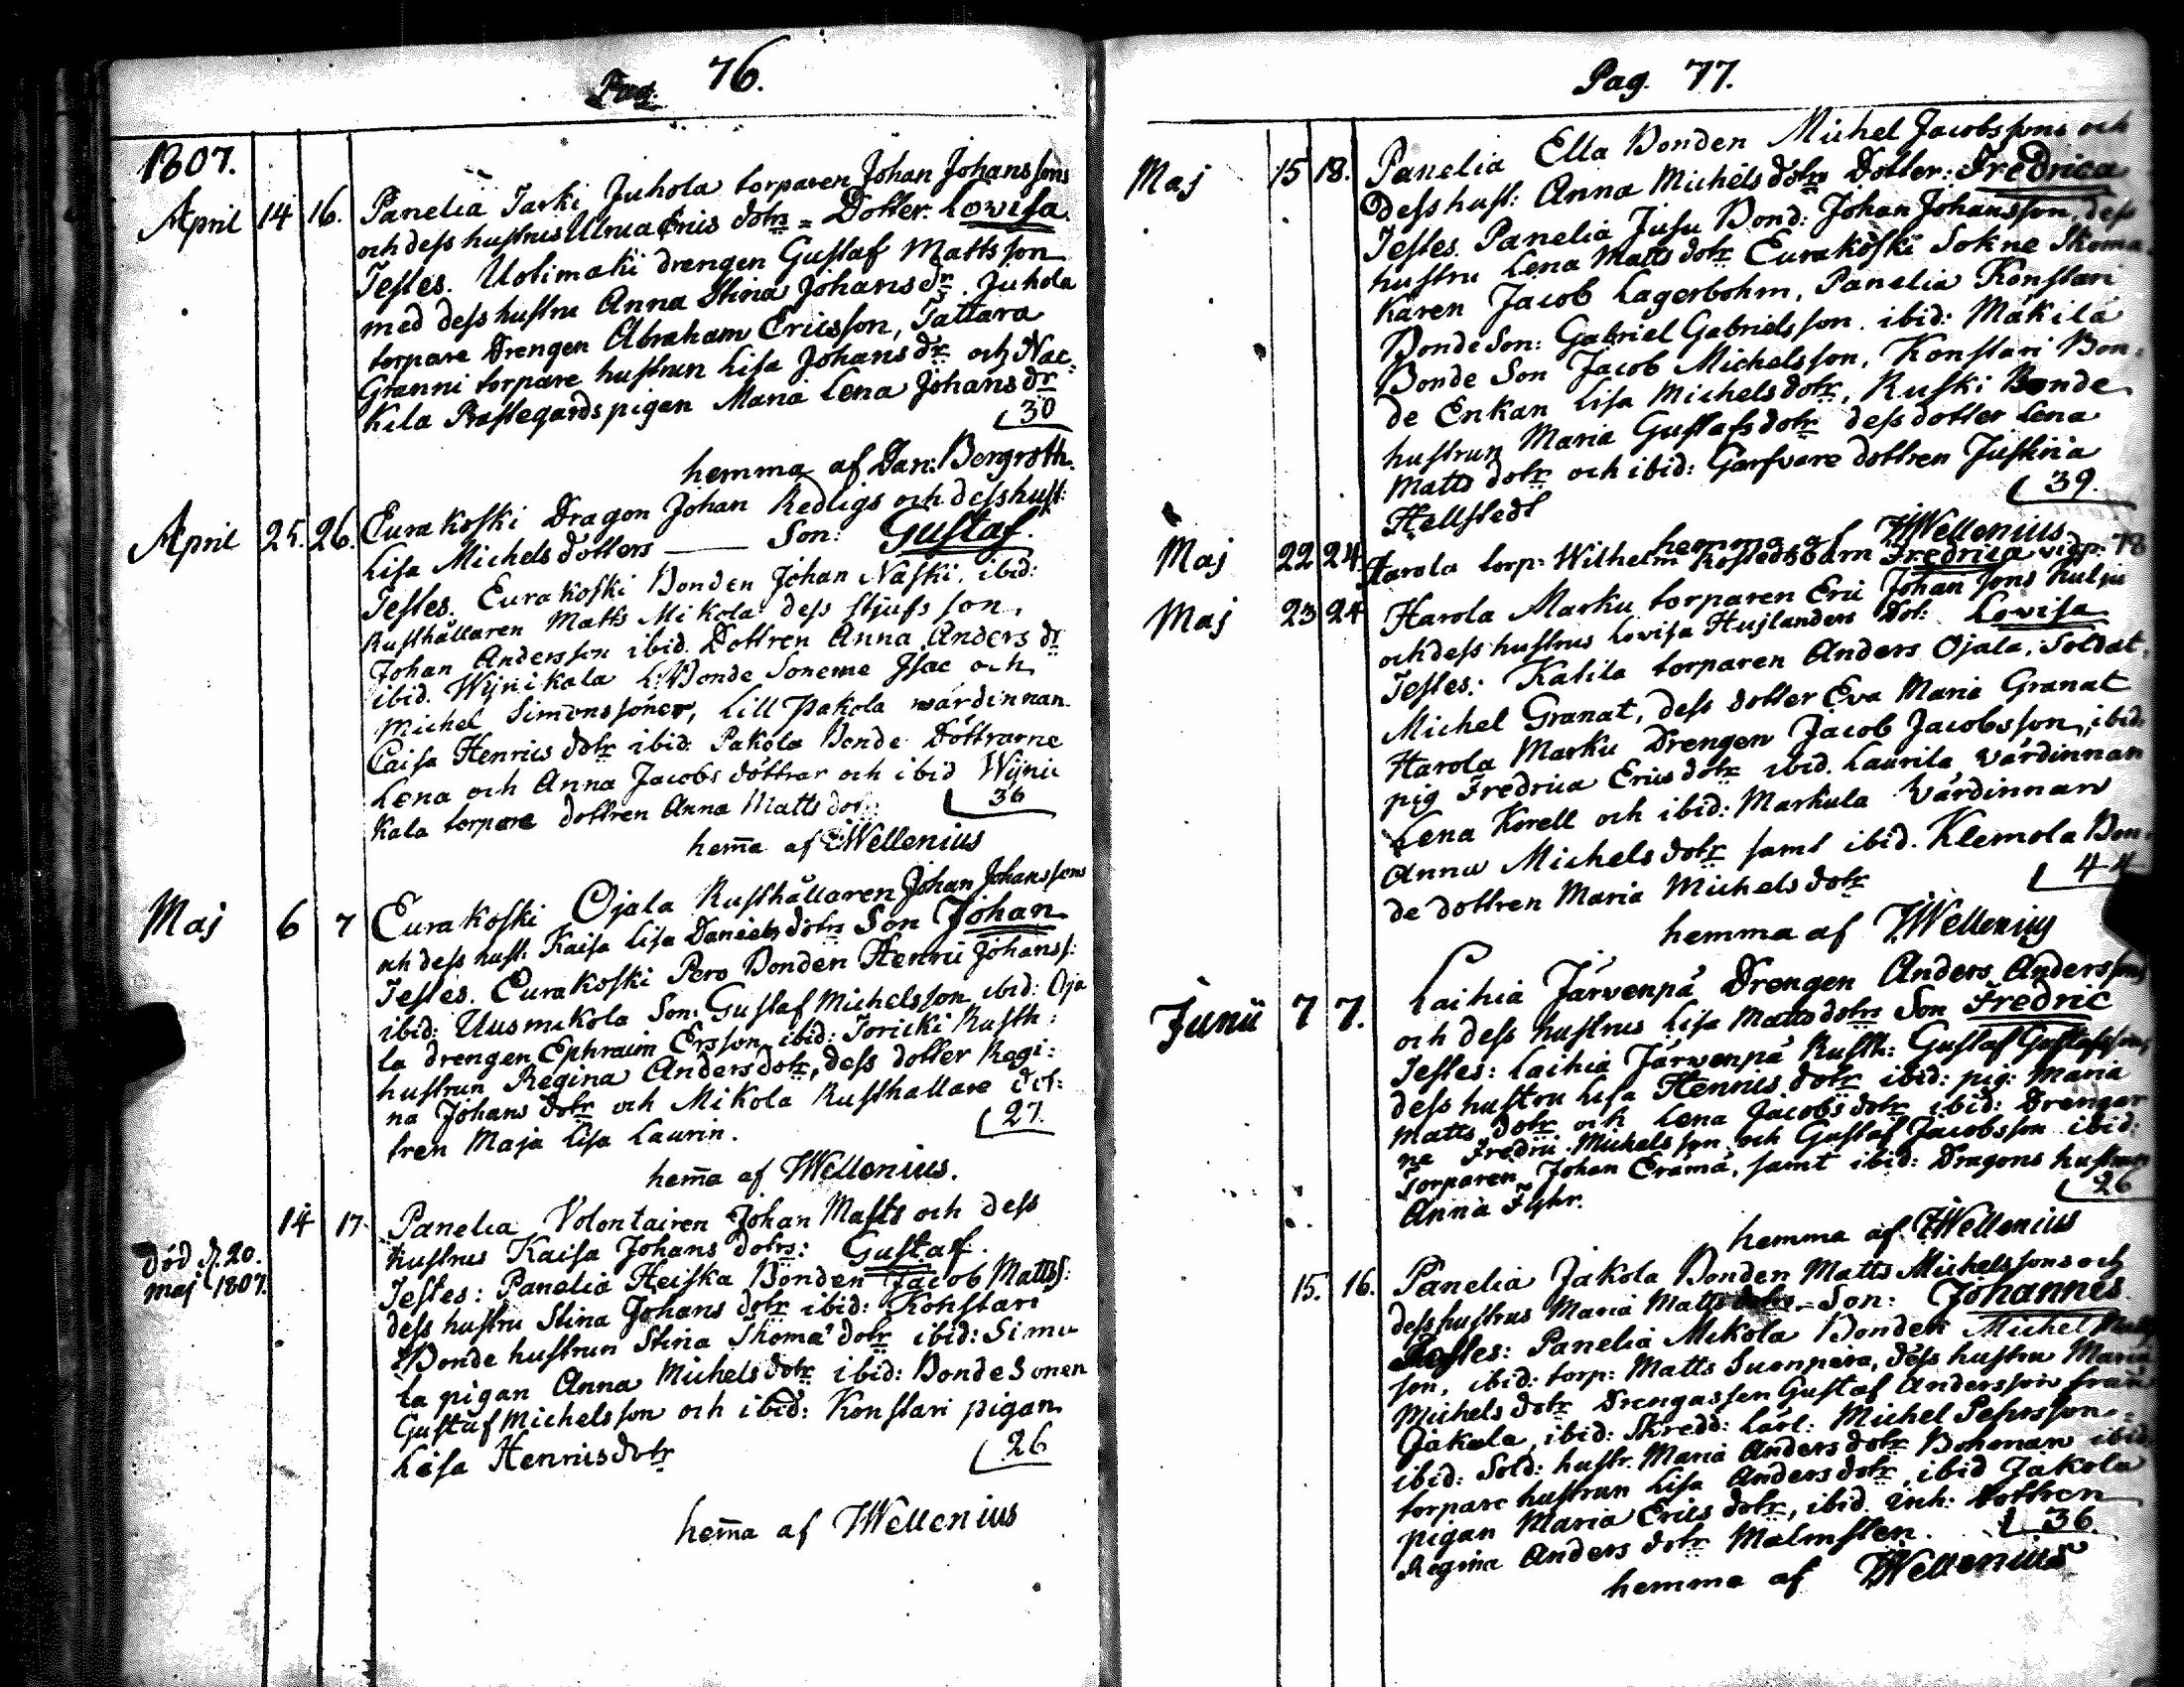 Pag. 76.
1807.
April 14 16. Panelia Tarki Juhola torparen Johan Johanssons
och dess hustrus Ulrica Erics dotrs = Dotter: Lovisa
Testes. Uotimaki drengen Gustaf Mattsson
med dess hustru Anna Stina Johans dr. Juhola
torpare Drengen Abraham Ericsson, Tattara
Granni torpare hustrun Lisa Johans dr och Nac-
kila Prästegårds pigan Maria Lena Johans dr
30
hemma af Dan: Bergroth.
April 25. 26. Eurakoski Dragon Johan Redligs och dess hust:
Lisa Michels dotters — Son: Gustaf.
Testes. Eurakoski Bonden Johan Naski, ibid:
Rusthållaren Matts Mikola dess stjufs son,
Johan Andersson ibid. Dottren Anna Anders dr
ibid. Wijnikala Bonde Sonerne Isac och
Michel Simonssöner, Lill Pakola wärdinnan
Caisa Henrics dotr ibid. Pakola Bonde Döttrarne
Lena och Anna Jacobs döttrar och ibid Wijni
kala torpare dottren Anna Matts dotr
36
hem̄a af Wellenius
Maj 6 7 Eurakoski Ojala Rusthållaren Johan Johanssons
och dess hust: Kaisa Lisa Daniels dotrs Son Johan
Testes. Eurakoski Pero Bonden Henric Johanss:
ibid: Uusmikola Son: Gustaf Michelsson ibid: Oja
la drengen Ephraim Ersson ibid: Toricki Rusth:
hustrun Regina Anders dotr, dess dotter Regi:
na Johans dotr och Mikola Rusthållare dot:
tren Maja Lisa Laurin.
27.
hem̄a af JWellenius.
14 17. Panelia Volontairen Johan Masts och dess
hustrus Kaisa Johans dotrs: Gustaf.
död d. 20.
maj 1807.
Testes: Panelia Heiska Bonden Jacob Matts:
dess hustru Stina Johans dotr ibid: Konstari
Bonde hustrun Stina Thoma dotr ibid: Simu
la pigan Anna Michels dotr ibid: Bonde Sonen
Gustaf Michelsson och ibid: Konstari pigan
Lisa Henrics dotr
26
hem̄a af JWellenius
Pag. 77.
Maj 15 18. Panelia Ella Bonden Michel Jacobssons och
dess hust: Anna Michels dotrs Dotter: Fredrica
Testes. Panelia Jusu Bond: Johan Johansson, dess
hustru Lena Matts dotr Eurakoski Sokne Skoma
karen Jacob Lagerbohm, Panelia Konstari
Bonde Son: Gabriel Gabrielsson ibid: Mäkilä
Bonde Son Jacob Michelsson, Konstari Bon-
de Enkan Lisa Michels dotr, Ruski Bonde
hustrun Maria Gustafs dotr dess dotter Lena
Matts dotr och ibid: Garfvare dottren Justina
Hellstedt
39.
hemma af JWellenius
Maj 22 24. Harola torp: Wilhelm Kosteds barn Fredrica vid p: 78
Maj 23 24 Harola Marku torparen Eric Johansons Kulju
och dess hustrus Lovisa Hujlanders Dot: Lovisa
Testes: Katila torparen Anders Ojala, Soldat
Michel Granat, dess dotter Eva Maria Granat
Harola Marku Drengen Jacob Jacobsson, ibid
pig Fredrica Erics dotr ibid. Laurila värdinnan
Lena Korell och ibid: Markula Värdinnan
Anna Michels dotr samt ibid. Klemola Bon-
de dottren Maria Michels dotr
44
hemma af JWellenius
Junii 7 7. Laihia Järvenpä Drengen Anders Anderssons
och dess hustrus Lisa Matts dotrs Son Fredric
Testes: Laihia Järvenpä Rusth: Gustaf Gustafsson,
dess hustru Lisa Henrics dotr ibid: pig: Maria
Matts dotr och Lena Jacobs dotr ibid: Drengar
ne Fredric Michelsson och Gustaf Jacobsson ibid:
Torparen Johan Eramä, samt ibid: Dragons hustrun
Anna Fyhr.
26
hemma af JWellenius
15. 16. Panelia Jakola Bonden Matts Michelssons och
dess hustrus Maria Matts dotrs — Son: Johannes
Testes: Panelia Mikola Bonden Michel Matts
son, ibid: torp: Matts Suenpära, dess hustru Maria
Michels dotr Drengassen Gustaf Andersson från
Jakola, ibid: Skredd: Lärl: Michel Pehrsson
ibid: Sold: hustr. Maria Anders dotr Bohman ibid
torpare hustrun Lisa Anders dotr, ibid Jakola
pigan Maria Erics dotr, ibid. inh: dottren
Regina Anders dotr Malmsten.
36.
hemma af JWellenius